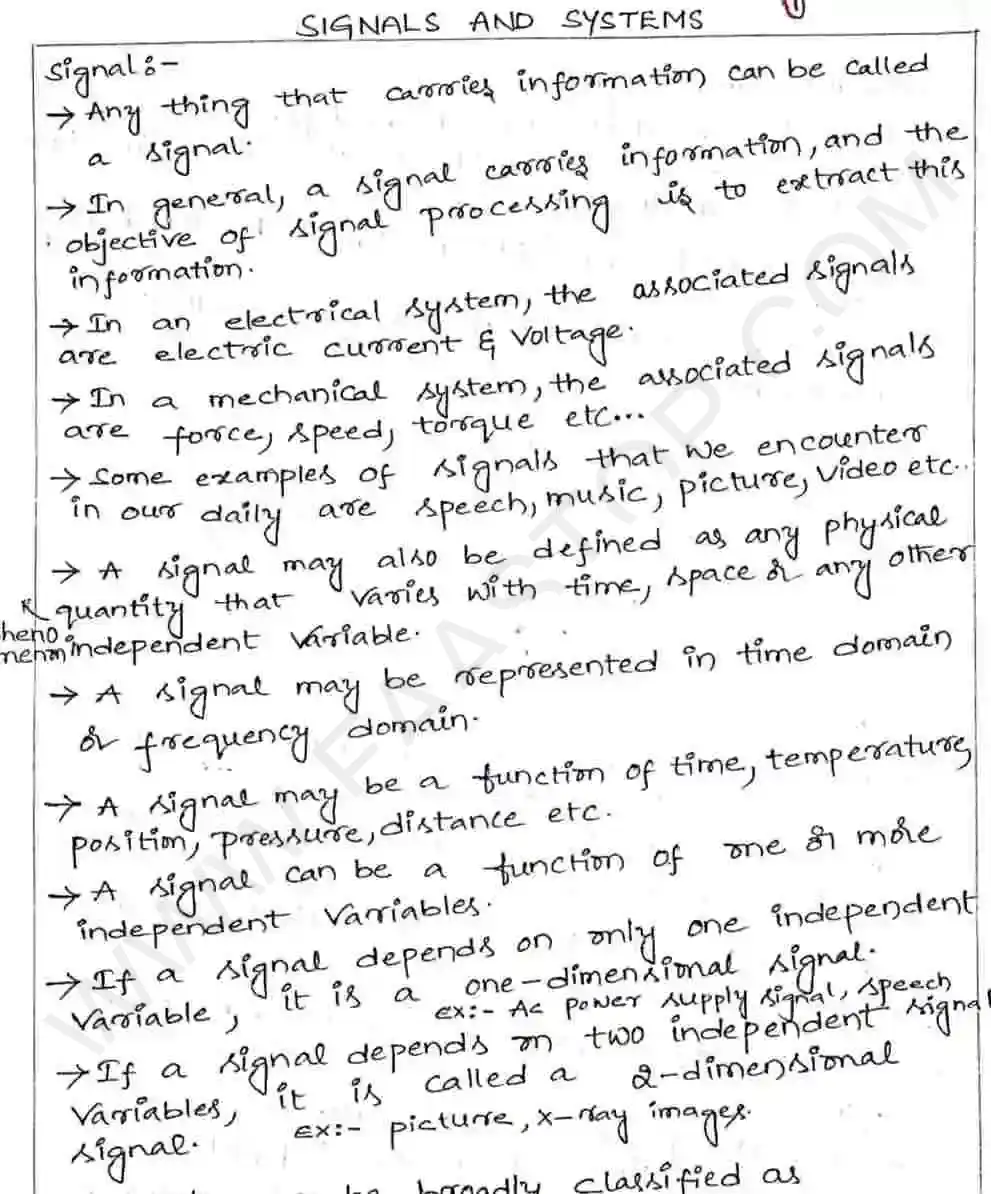 SIGNALS AND SYSTEMS
Signal:-
→ Any thing that carries information can be called
a signal.
→ In general, a signal carries information, and the
objective of signal processing is to extract this
information.
→ In an electrical system, the associated signals
are electric current & Voltage.
→ In a mechanical system, the associated signals
are force, speed, torque etc...
→ Some examples of signals that we encounter
in our daily are speech, music, picture, Video etc..
→ A signal may also be defined as any physical
quantity that varies with time, space or any other
independent variable.
→ A signal may be represented in time domain
or frequency domain.
→ A signal may be a function of time, temperature,
position, pressure, distance etc.
→ A signal can be a function of one or more
independent Variables.
→ If a signal depends on only one independent
Variable, it is a one-dimensional signal.
Ex:- Ac power supply signal, speech signal
→ If a signal depends on two independent
Variables, it is called a 2-dimensional
signal. Ex:- picture, x-ray images.
be broadly classified as